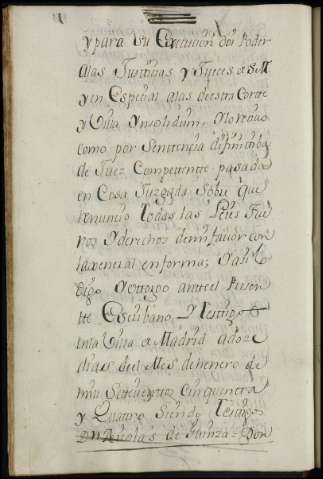 y para su Execucion doi Poder
alas Justicias y Jueces de S M
y en Especial alas de esta Corte
y Villa Ynsolidum, Y lo reciuo
como por Sentencia difinitiba
de Juez Competente pasada
en Cosa Juzgada Sobre que
renuncio todas las Leies Fue
ros Y derechos demi fauor con
la general en forma; Y asi lo
digo Y otorgo ante el Presen
te Escribano, Y testigos
enla Villa de Madrid adoze
dias del Mes de henero de
mill Setecientos Cinquenta
y Quatro Siendo testigos
Dn Nicolas de = Don